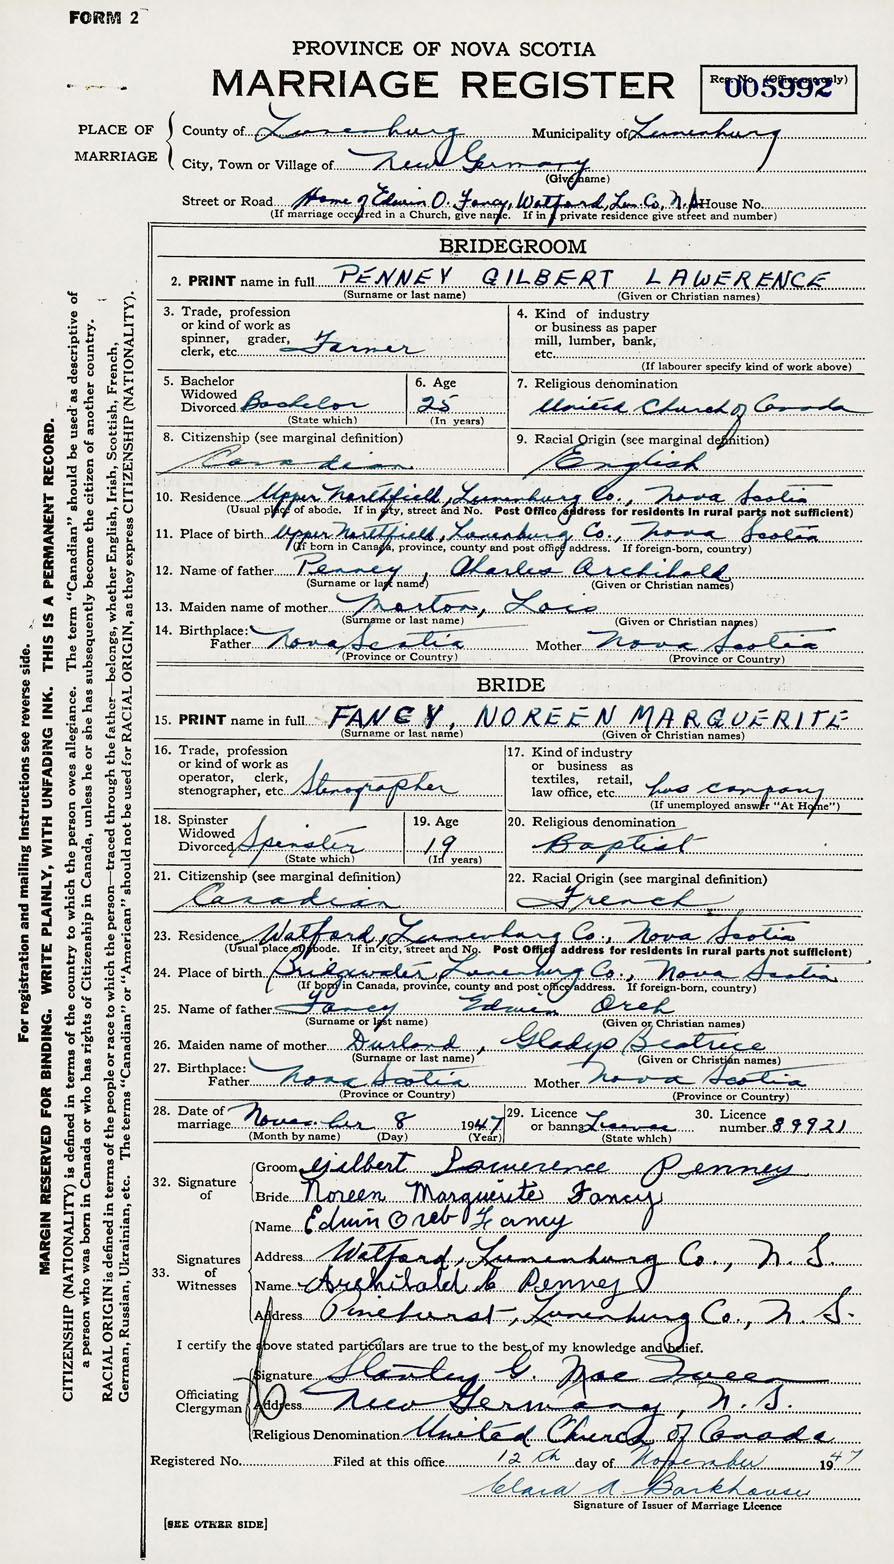 FORM 2
PROVINCE OF NOVA SCOTIA
MARRIAGE REGISTER
Reg. No. (Office use only)
005992
PLACE OF MARRIAGE
County of Lunenburg Municipality of Lunenburg
City, Town or Village of New Germany
(Give name)
Street or Road Home of Edwin O. Fancy, Watford, Lun. Co., N.S. House No.
(If marriage occurred in a Church, give name. If in a private residence give street and number)
BRIDEGROOM
2. PRINT name in full PENNEY GILBERT LAWERENCE
(Surname or last name) (Given or Christian names)
3. Trade, profession
or kind of work as
spinner, grader,
clerk, etc. Farmer
4. Kind of industry
or business as paper
mill, lumber, bank,
etc.
(If labourer specify kind of work above)
5. Bachelor
Widowed
Divorced Bachelor
(State which)
6. Age
25
(In years)
7. Religious denomination
United Church of Canada
8. Citizenship (see marginal definition)
Canadian
9. Racial Origin (see marginal definition)
English
10. Residence Upper Northfield, Lunenburg Co., Nova Scotia
(Usual place of abode. If in city, street and No. Post Office address for residents in rural parts not sufficient)
11. Place of birth Upper Northfield, Lunenburg Co., Nova Scotia
(If born in Canada, province, county and post office address. If foreign-born, country)
12. Name of father Penney, Charles Archibald
(Surname or last name) (Given or Christian names)
13. Maiden name of mother Morton, Lois
(Surname or last name) (Given or Christian names)
14. Birthplace:
Father Nova Scotia Mother Nova Scotia
(Province or Country) (Province or Country)
BRIDE
15. PRINT name in full FANCY, NOREEN MARGUERITE
(Surname or last name) (Given or Christian names)
16. Trade, profession
or kind of work as
operator, clerk,
stenographer, etc. Stenographer
17. Kind of industry
or business as
textiles, retail,
law office, etc. company
(If unemployed answer "At Home")
18. Spinster
Widowed
Divorced Spinster
(State which)
19. Age
19
(In years)
20. Religious denomination
Baptist
21. Citizenship (see marginal definition)
Canadian
22. Racial Origin (see marginal definition)
French
23. Residence Watford, Lunenburg Co., Nova Scotia
(Usual place of abode. If in city, street and No. Post Office address for residents in rural parts not sufficient)
24. Place of birth Bridgewater, Lunenburg Co., Nova Scotia
(If born in Canada, province, county and post office address. If foreign-born, country)
25. Name of father Fancy Edwin Oreb
(Surname or last name) (Given or Christian names)
26. Maiden name of mother Durland, Gladys Beatrice
(Surname or last name) (Given or Christian names)
27. Birthplace:
Father Nova Scotia Mother Nova Scotia
(Province or Country) (Province or Country)
28. Date of
marriage November 8 1947
(Month by name) (Day) (Year)
29. Licence
or banns License
(State which)
30. Licence
number 89921
32. Signature of
Groom Gilbert Lawerence Penney
Bride Noreen Marguerite Fancy
33. Signatures of Witnesses
Name Edwin Oreb Fancy
Address Watford, Lunenburg Co., N. S.
Name Archibald C Penney
Address Pinehurst, Lunenburg Co., N. S.
I certify the above stated particulars are true to the best of my knowledge and belief.
Officiating Clergyman
Signature Stanley G. MacQueen
Address New Germany, N. S.
Religious Denomination United Church of Canada
Registered No. Filed at this office 12th day of November 1947
Clara A Barkhouse
Signature of Issuer of Marriage Licence
[SEE OTHER SIDE]
For registration and mailing Instructions see reverse side.
MARGIN RESERVED FOR BINDING. WRITE PLAINLY, WITH UNFADING INK. THIS IS A PERMANENT RECORD.
CITIZENSHIP (NATIONALITY) is defined in terms of the country to which the person owes allegiance. The term "Canadian" should be used as descriptive of
a person who was born in Canada or who has rights of Citizenship in Canada, unless he or she has subsequently become the citizen of another country.
RACIAL ORIGIN is defined in terms of the people or race to which the person—traced through the father—belongs, whether English, Irish, Scottish, French,
German, Russian, Ukrainian, etc. The terms "Canadian" or "American" should not be used for RACIAL ORIGIN, as they express CITIZENSHIP (NATIONALITY).